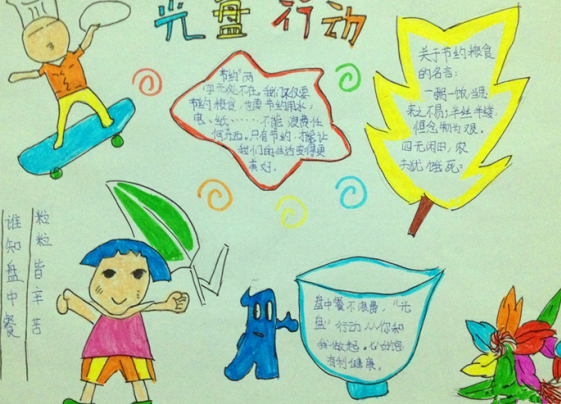 光盘行动
节约"两
字无处不在。我们不仅要
节约粮食,也要节约用水,
电、纸……不能浪费任
何东西。只有节约,才能让
我们的生活变得更
美好。
关于节约粮食
的名言:
一粥一饭,当思
来之不易;半丝半缕,
恒念物力为艰。
四无闲田,农
夫犹饿死。
谁知盘中餐
粒粒皆辛苦
盘中餐不浪费,"光
盘"行动从你和
我做起。
有利健康。